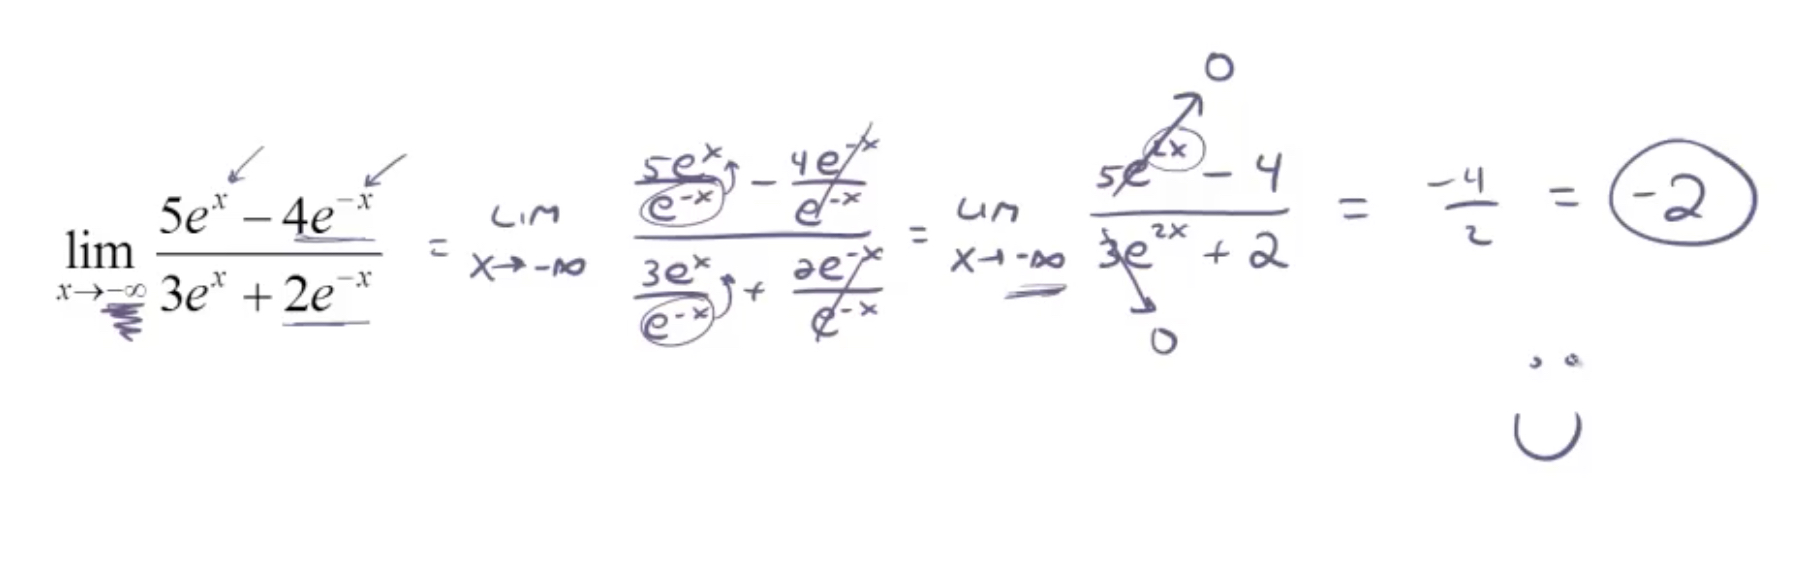 lim x→-∞ (5e^x − 4e^-x)/(3e^x + 2e^-x) = LIM x→-∞ (5e^x/e^-x − 4e^-x/e^-x)/(3e^x/e^-x + 2e^-x/e^-x) = LIM x→-∞ (5e^2x − 4)/(3e^2x + 2) = -4/2 = -2
0
0